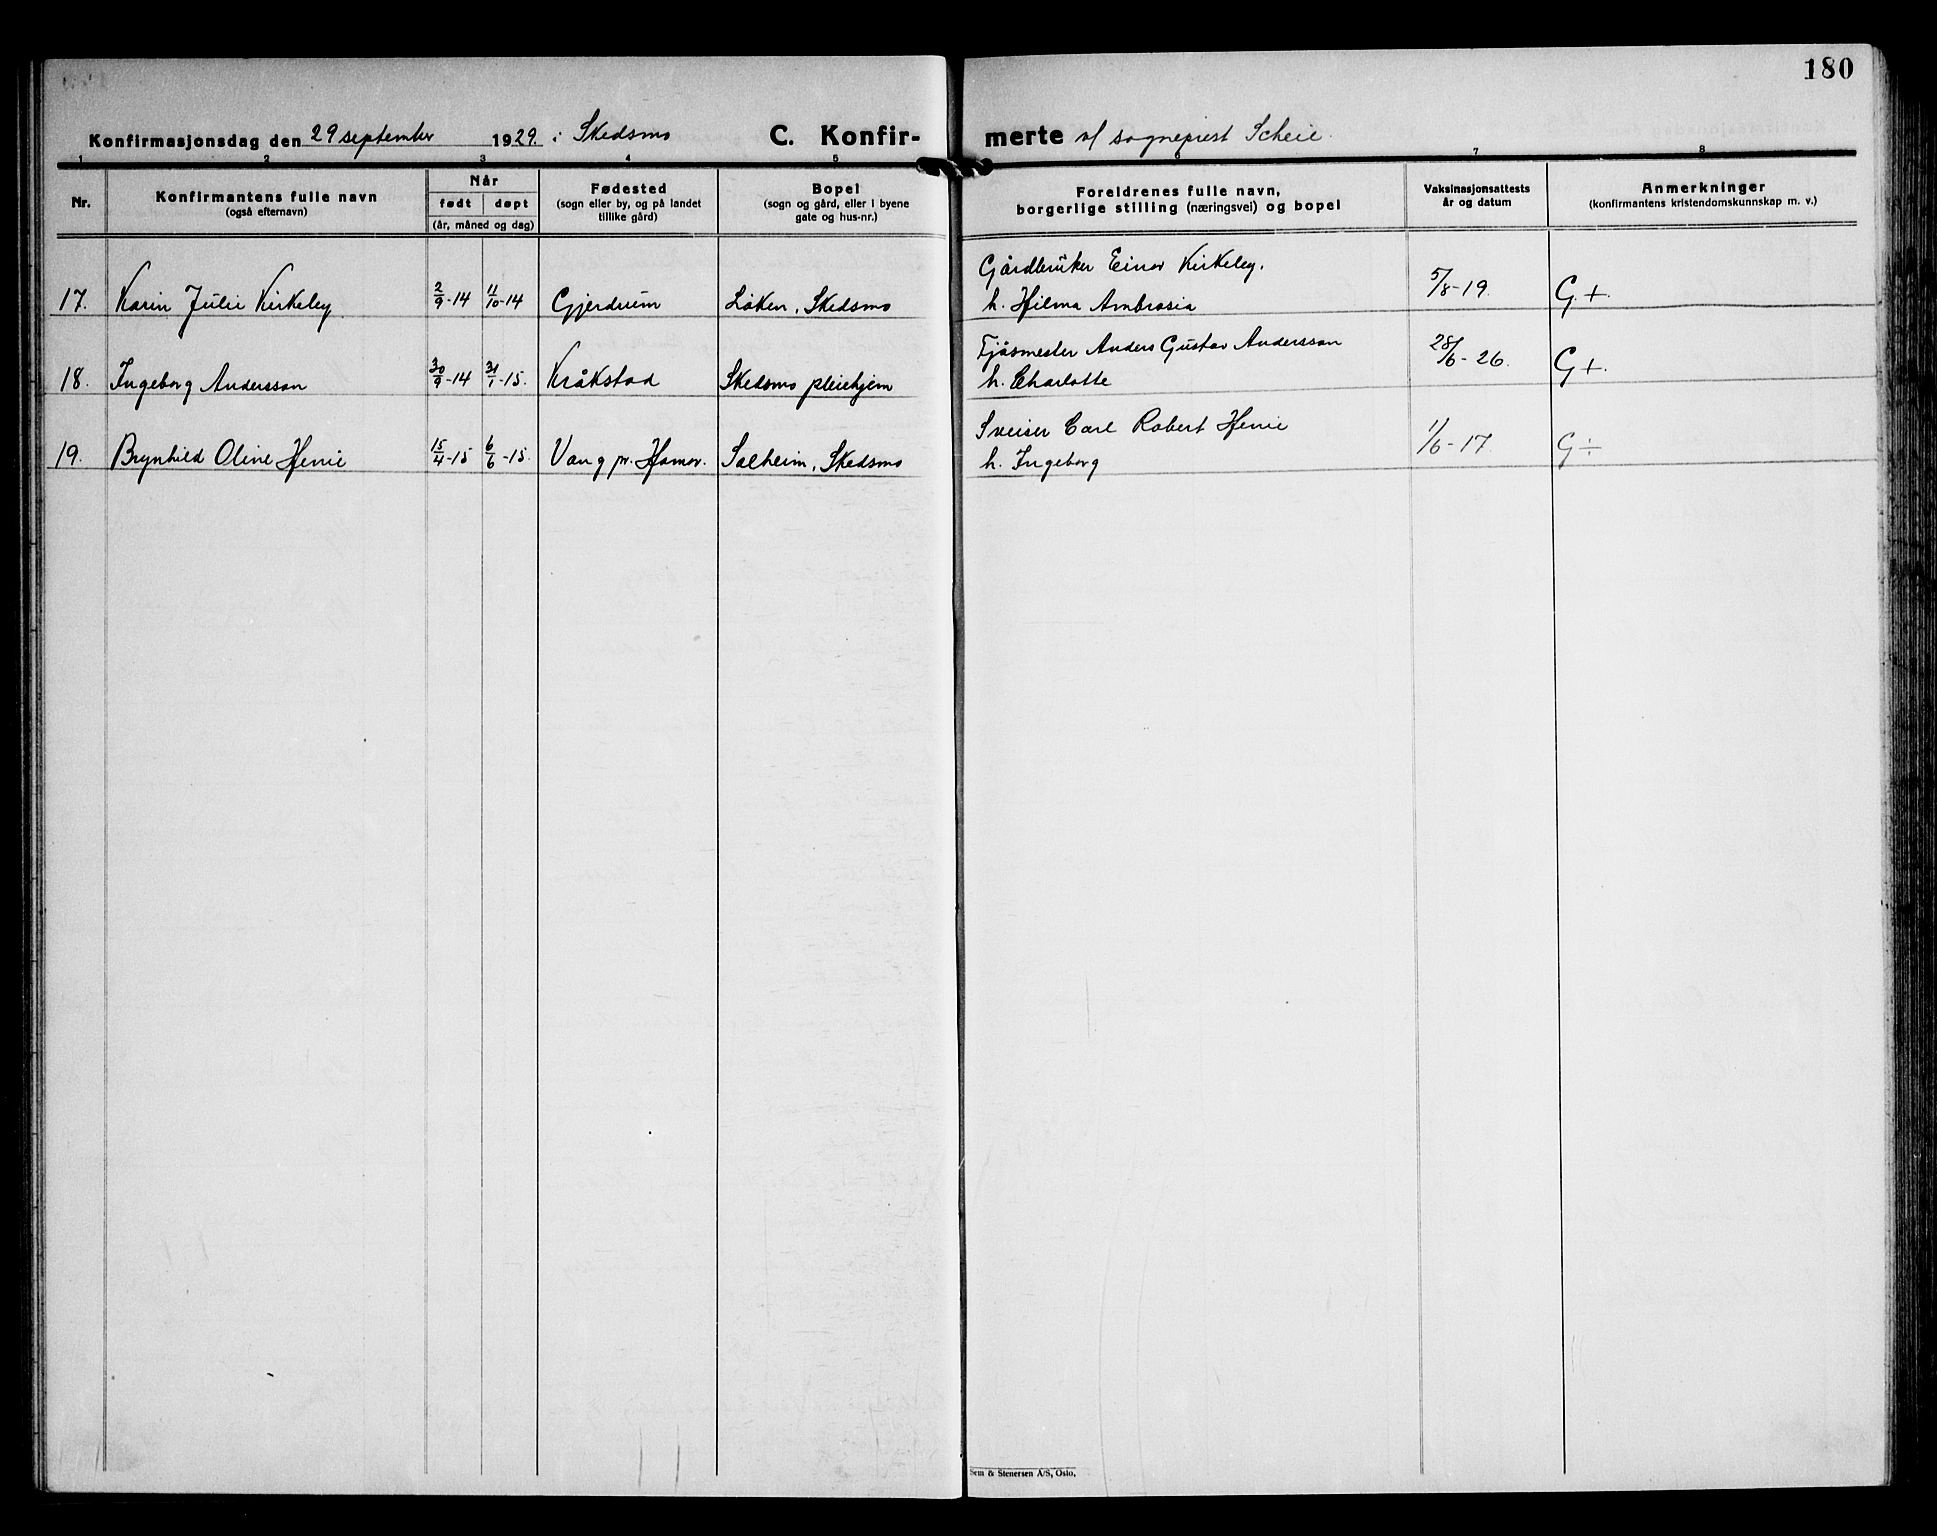 180
Konfirmasjonsdag den 29 september 1929. i Skedsmo C. Konfir- merte v/ sogneprest Scheie.
1 2 3 4 5 6 7 8
Nr. Konfirmantens fulle navn (også efternavn) Når født døpt (år, måned og dag) Fødested (sogn eller by, og på landet tillike gård) Bopel (sogn og gård, eller i byene gate og hus-nr.) Foreldrenes fulle navn, borgerlige stilling (næringsvei) og bopel Vaksinasjonsattests år og datum Anmerkninger (konfirmantens kristendomskunnskap m. v.)
Gårdbruker Einar Kirkeby.
17. Karin Julie Kirkeby. 2/9-14 11/10-14 Gjerdrum Løken, Skedsmo h. Hilma Ambrosia 5/8-19. G.+.
Fjøsmester Anders Gustav Andersson
18. Ingeborg Andersson 30/9-14 31/1-15. Kråkstad Skedsmo pleiehjem h. Charlotte 28/6-26. G+.
Sveiser Carl Robert Henie
19. Brynhild Oline Henie 15/4-15 6/6-15. Vang pr. Hamar. Solheim, Skedsmo h. Ingeborg 1/6-17. G÷
Sem & Stenersen A/S, Oslo.